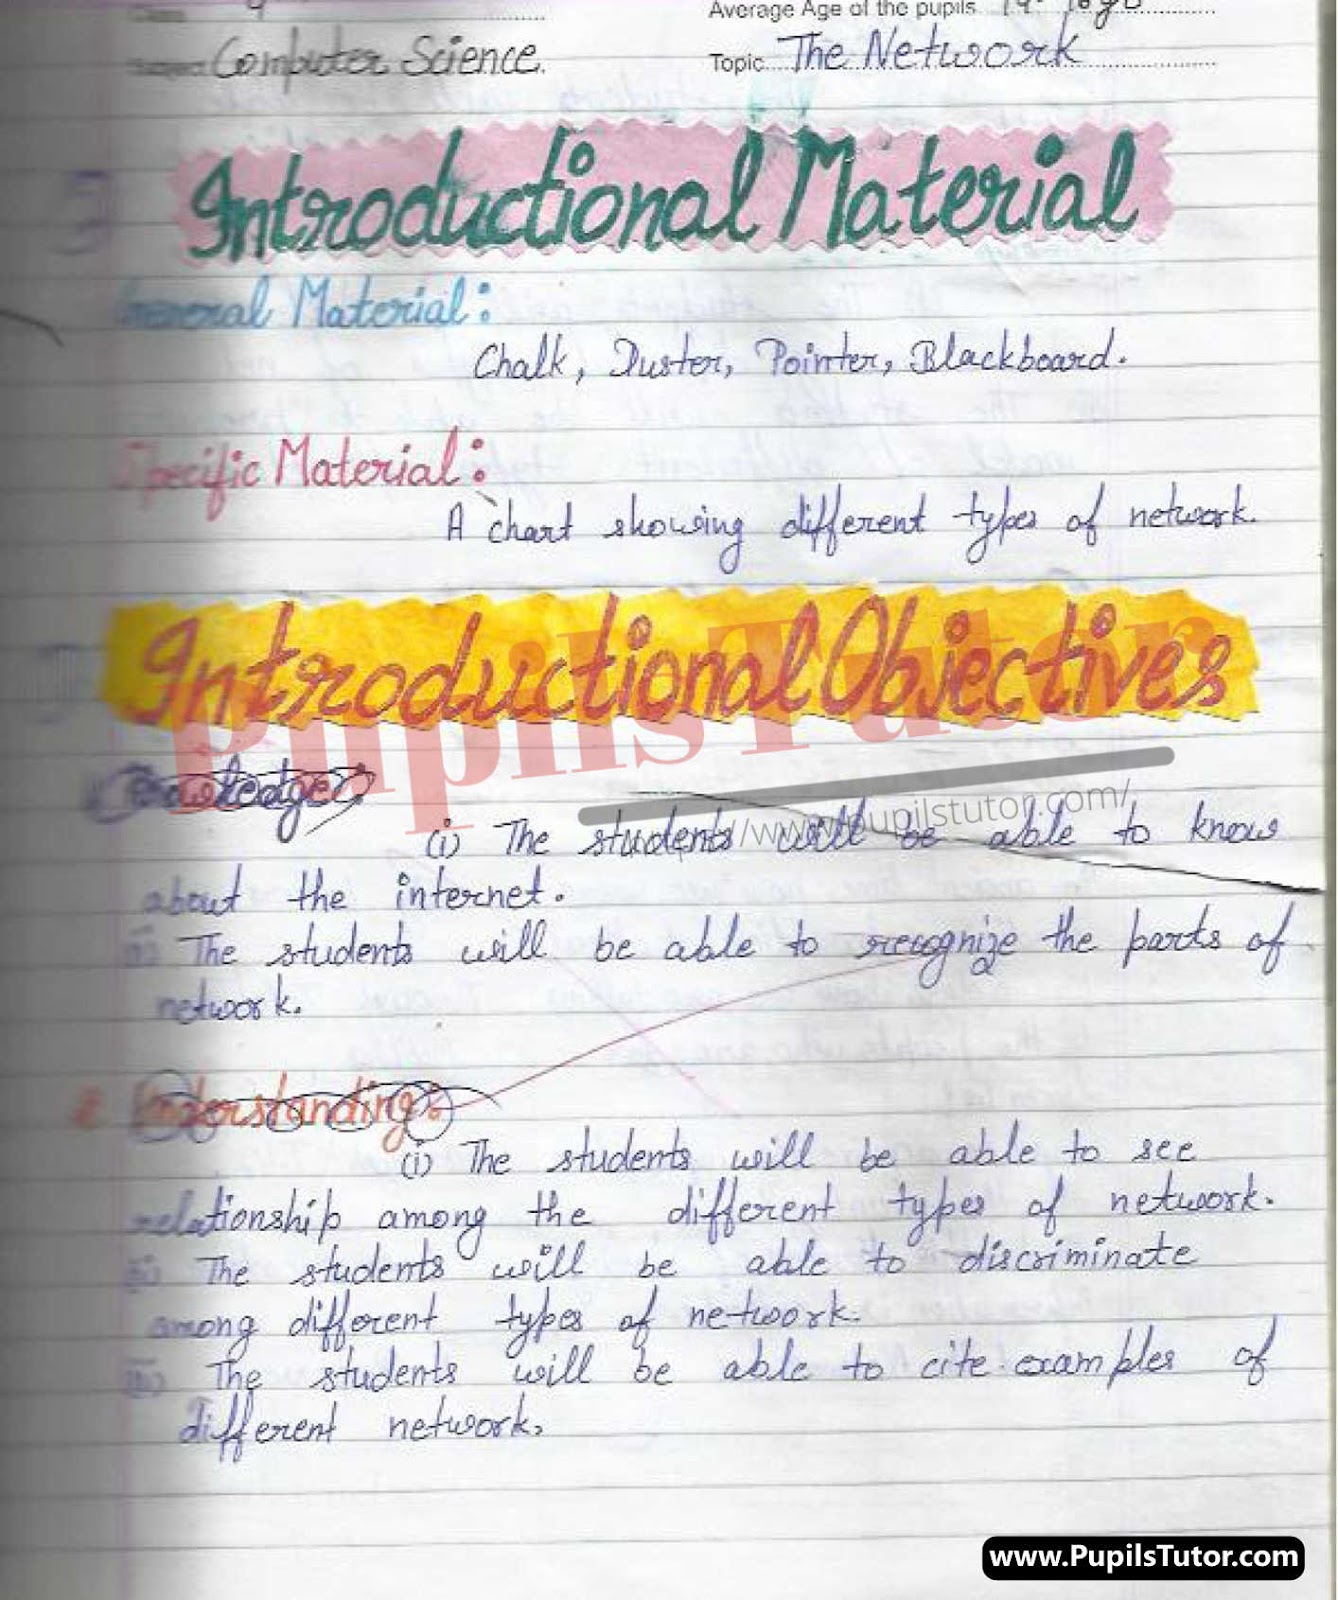 Class 9 Average Age of the pupils 14
Subject Computer Science. Topic The Network
Introductional Material
General Material:
Chalk, Duster, Pointer, Blackboard.
Specific Material:
A chart showing different types of network.
Introductional Objectives
PupilsTutor
Knowledge:
//www.pupilstutor.com/
(i) The students will be able to know
about the internet.
ii) The students will be able to recognize the parts of
network.
Understanding:
(i) The students will be able to see
relationship among the different types of network.
ii) The students will be able to discriminate
among different types of network.
iii) The students will be able to cite examples of
different network.
www.PupilsTutor.com